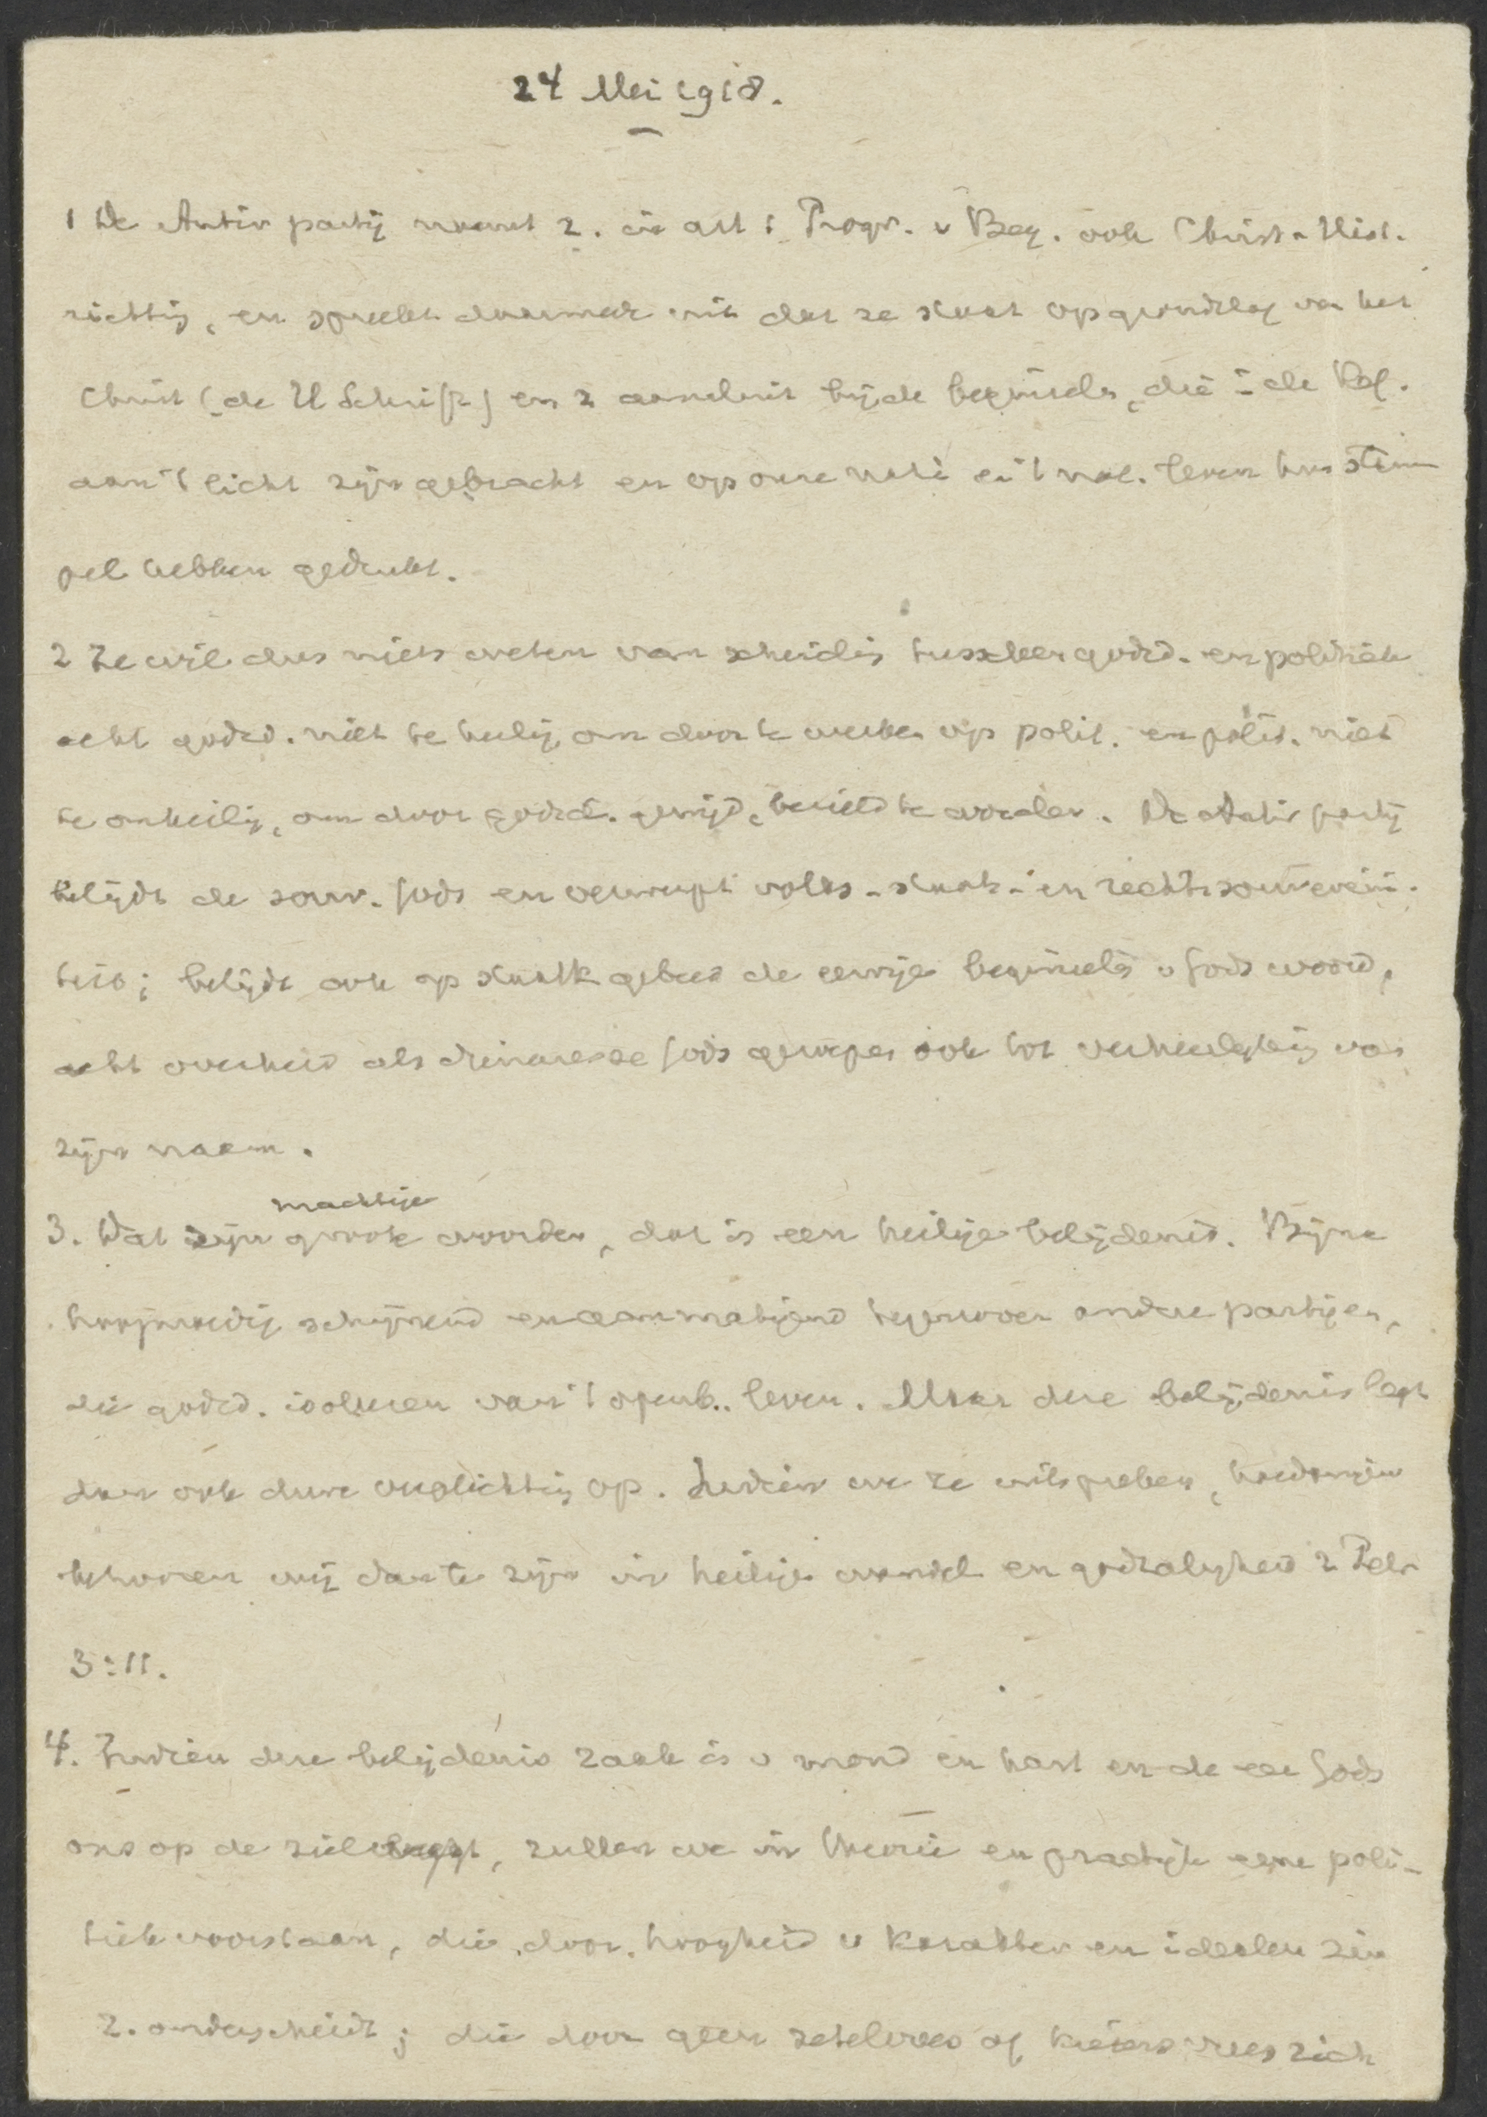 24 Mei 1918.
1 De Antir partij noemt z. in art 1 Progr. v Beg. ook Christ-Hist.
richting, en spreekt daarmede uit dat ze staat op grondslag van het
Christ (de H Schrift) en z aansluit bij de beginselen, die i de Ref.
aan 't licht zijn gebracht en op onze natie en 't nat. leven hun stem
pel hebben gedrukt.
2 Ze wil dus niets weten van scheidig tusschen godsd. en politiek
acht godsd. niet te heilig om door te werken op polit. en polit. niet
te onheilig, om door godsd. gewijd, bezield te worden. De Antir partij
belijdt de souv. Gods en verwerpt volks- staats- en rechtssouverein.
teit; belijdt ook op staatk gebied de eeuwige beginsels v Gods woord,
acht overheid als dienaresse Gods geroepen ook tot verheerlijking van
zijn naam.
machtige
3. Dat zijn groote woorden, dat is een heilige belijdenis. Bijna
hoogmoedig schijnend en aanmatigend tegenover andere partijen,
die godsd. isoleeren van 't openb. leven. Maar deze belijdenis legt
dan ook dure verplichting op. Indien we ze uitspreken, hoedanigen
behooren wij dan te zijn in heilige wandel en godzaligheid 2 Petr
3:11.
4. Indien deze belijdenis zaak is v mond en hart en de eer Gods
ons op de ziel weegt, zullen we in theorie en practijk eene poli-
tiek voorstaan, die door hoogheid v karakter en idealen zin
z. onderscheidt; die door geen zetelvrees of kiezersvrees zich